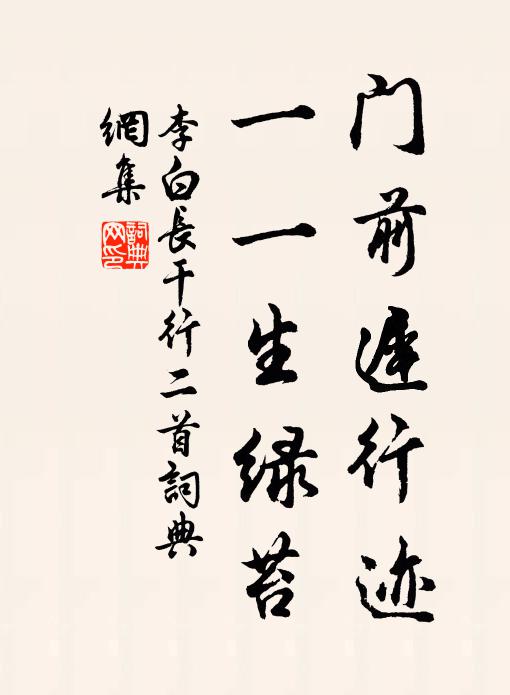 门前迟行迹
一一生绿苔
李白長干行二首詞典
網集
詞典网印